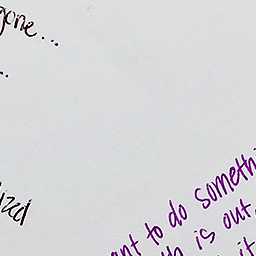 gone...
..
ized
ant to do somethi
th is out,
it